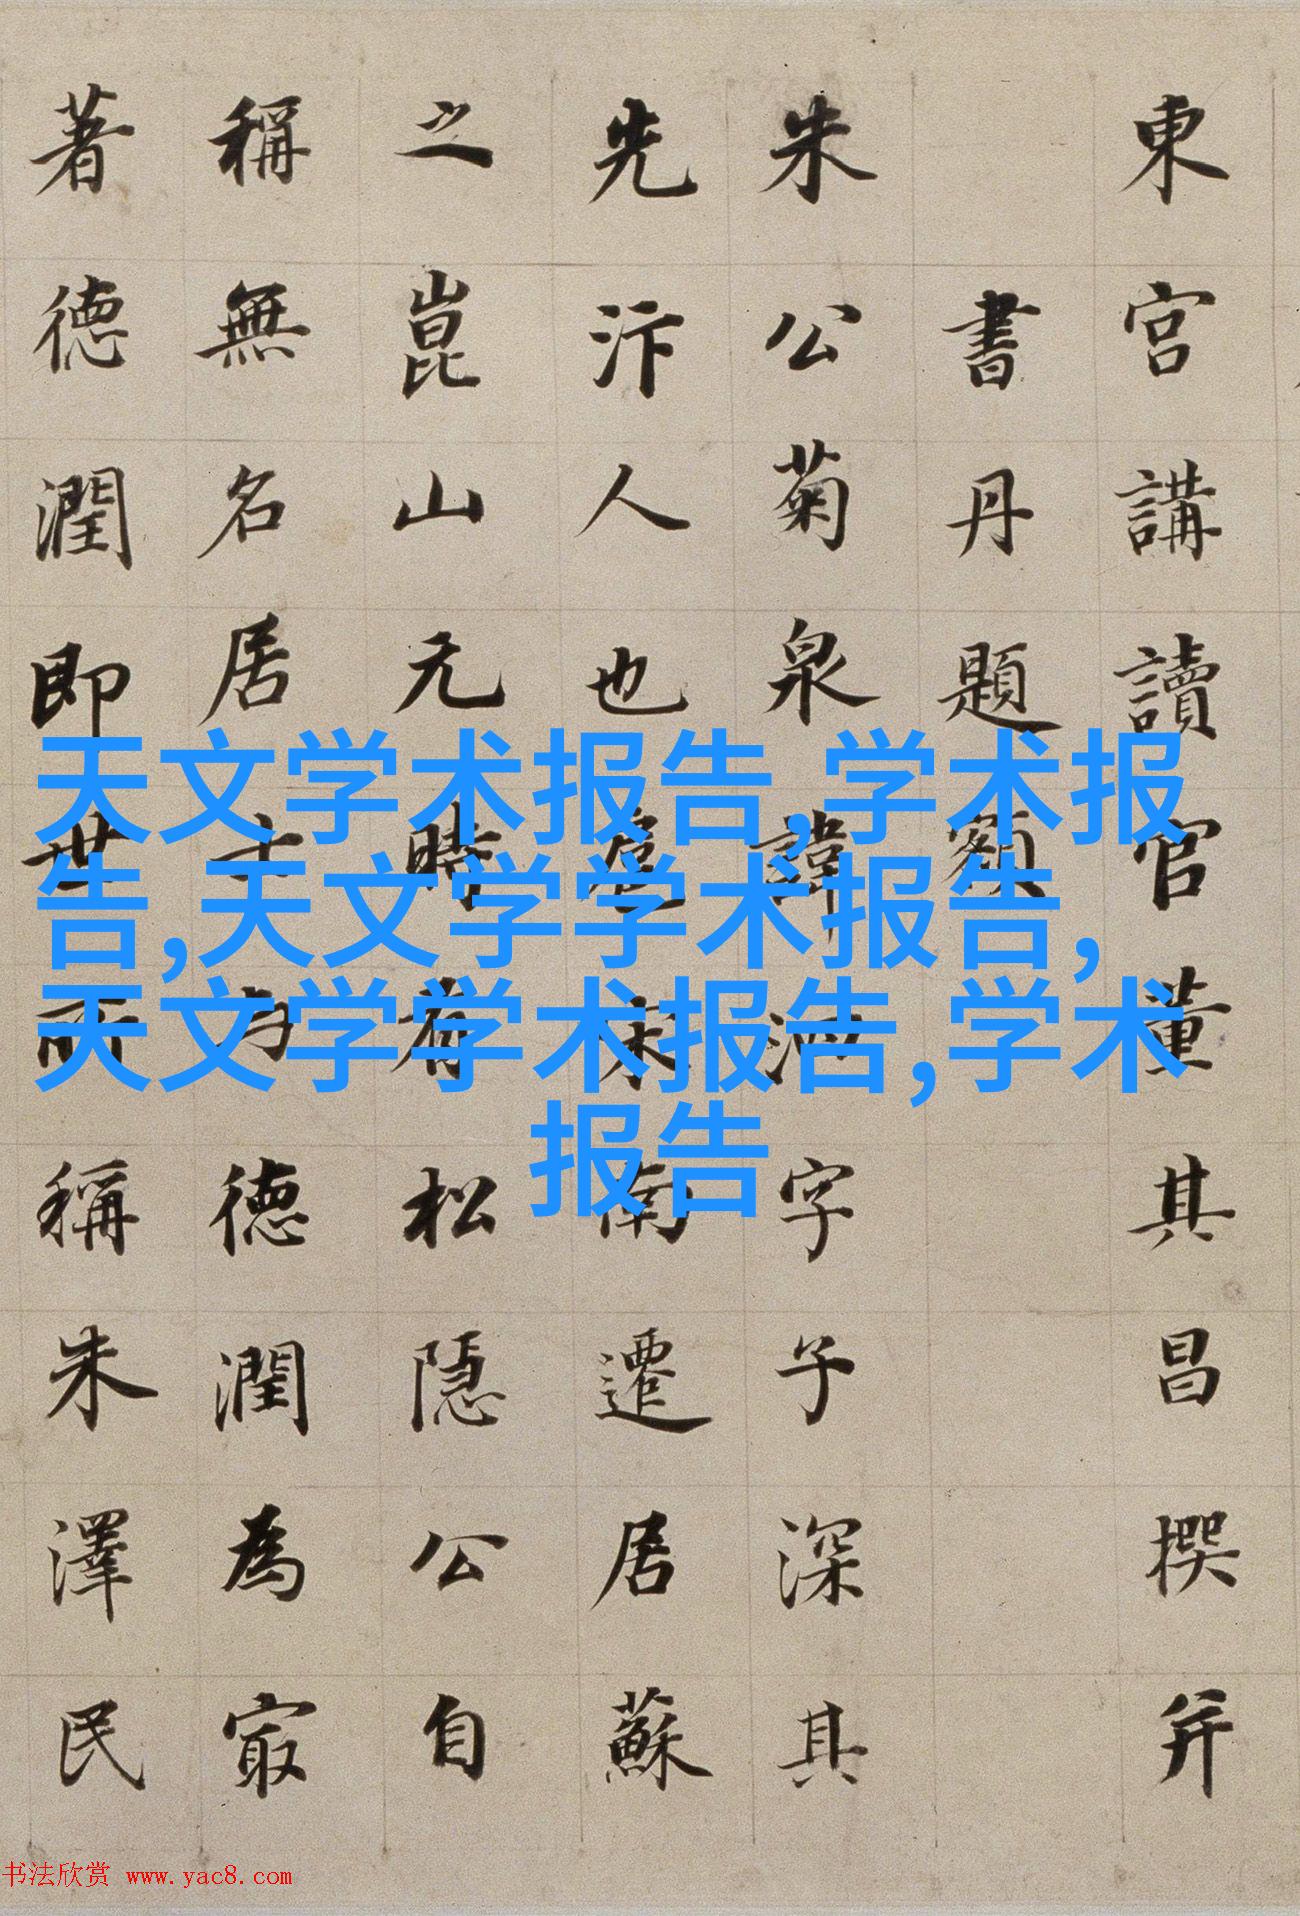 東宮講讀官董其昌撰并
書丹題額
朱公菊泉諱泗字子深其
先汴人也扈宋南遷居蘇
之崑山元時有松隱公自
稱無名居士与德潤為㝡
著德潤即世所稱朱澤民
天文学术报告,学术报
告,天文学学术报告,
天文学学术报告,学术
报告
书法欣赏 www.yac8.com